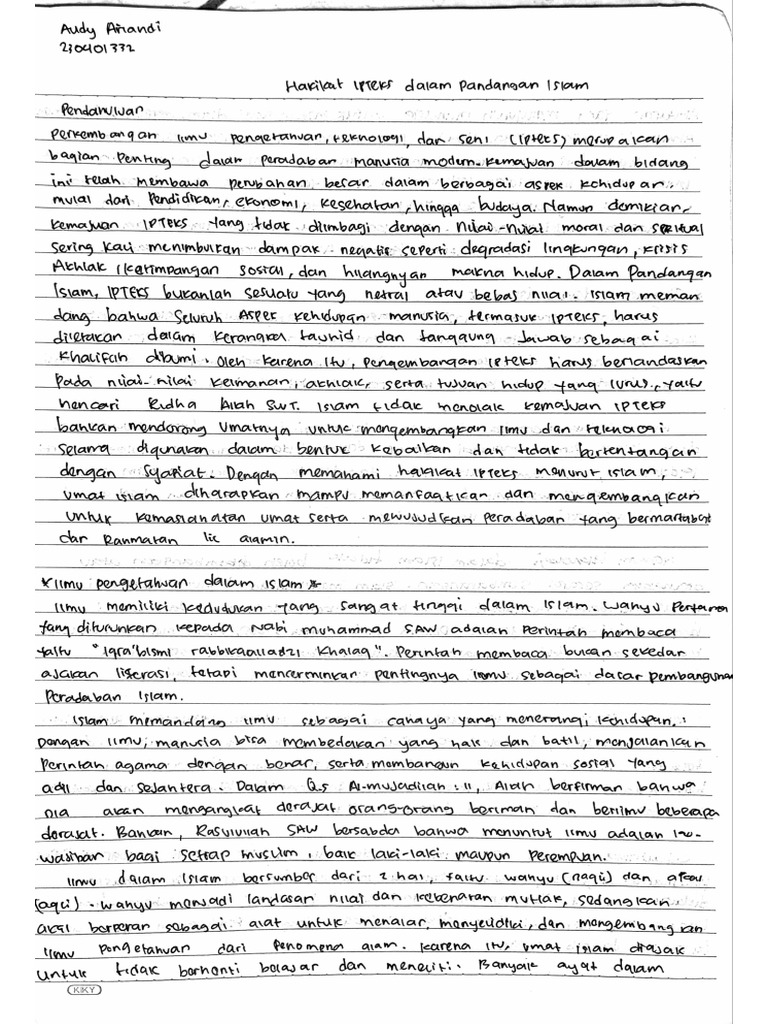 Audy Arandi
230401332
Hakikat IPTEKS dalam Pandangan Islam
Pendahuluan
Perkembangan Ilmu pengetahuan, teknologi, dan seni (Ipteks) merupakan
bagian Penting dalam Peradaban manusia modern. Kemajuan dalam bidang
ini telah membawa perubahan besar dalam berbagai aspek kehidupan,
mulai dari Pendidikan, ekonomi, kesehatan, hingga budaya. Namun demikian,
kemajuan IPTEKS yang tidak diimbagi dengan nilai-nilai moral dan spiritual
sering kali menimbulkan dampak negatif seperti degradasi lingkungan, krisis
Akhlak, ketimpangan sosial, dan hilangnyan makna hidup. Dalam Pandangan
Islam, IPTEKS bukanlah sesuatu yang netral atau bebas nilai. Islam meman
dang bahwa seluruh Aspek kehidupan manusia, termasuk IPTEKS, harus
diletakan dalam kerangka tauhid dan tanggung jawab sebagai
Khalifah dibumi. Oleh karena itu, pengembangan ipteks harus berlandaskan
Pada nilai-nilai keimanan, akhlak, serta tujuan hidup yang lurus, yaitu
mencari Ridha Allah SWT. Islam tidak menolak kemajuan IPTEKS
bahkan mendorong umatnya untuk mengembangkan ilmu dan teknologi
selama digunakan dalam bentuk kebaikan dan tidak bertentangan
dengan syariat. Dengan memahami hakikat IPTEKS menurut Islam,
umat islam diharapkan mampu memanfaatkan dan mengembangkan
untuk kemaslahatan umat serta mewujudkan Peradaban yang bermartabat
dan Rahmatan lil alamin.
*Ilmu pengetahuan dalam islam *
Ilmu memiliki kedudukan yang sangat tinggi dalam Islam. Wahyu Pertama
yang diturunkan kepada Nabi muhammad SAW adalah Perintah membaca
yaitu "Iqra'bismi rabbikaalladzi Khalaq". Perintah membaca bukan sekedar
ajakan literasi, tetapi mencerminkan pentingnya ilmu sebagai dasar pembangunan
Peradaban Islam.
Islam memandang ilmu sebagai cahaya yang menerangi kehidupan.
Dengan ilmu, manusia bisa membedakan yang hak dan batil, menjalankan
Perintah agama dengan benar, serta membangun kehidupan sosial yang
adil dan sejahtera. Dalam Q.S Al-mujadilah : 11, Allah berfirman bahwa
Dia akan mengangkat derajat orang-orang beriman dan berilmu beberapa
derajat. Bahkan, Rasulullah SAW bersabda bahwa menuntut ilmu adalah ke-
wajiban bagi setiap muslim, baik laki-laki maupun perempuan.
Ilmu dalam Islam bersumber dari 2 hal, yaitu wahyu (naqli) dan akal
(aqli). Wahyu menjadi landasan nilai dan kebenaran mutlak, sedangkan
akal berperan sebagai alat untuk menalar, menyelidiki, dan mengembangkan
Ilmu pengetahuan dari fenomena alam. Karena itu, umat islam diajak
untuk tidak berhenti belajar dan meneliti. Banyak ayat dalam
KIKY